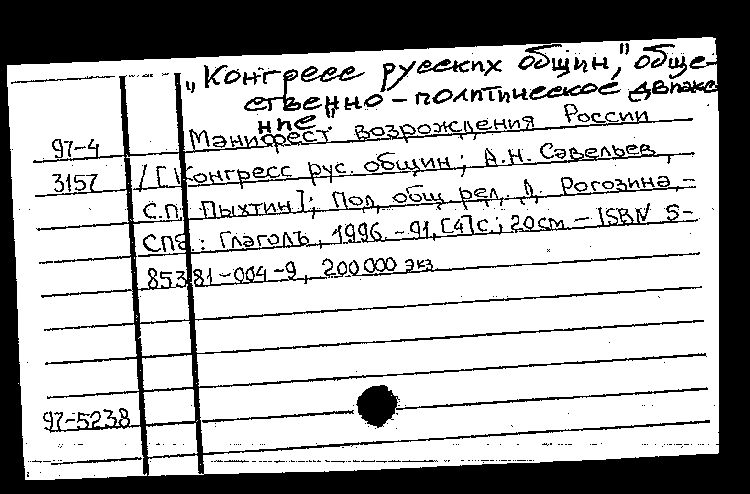 „Конгресс русских общин," обще-
ственно-политическое движе
ние"
97-4 Манифест возрождения России
3157 / [Конгресс рус. общин; А.Н. Савельев,
С.П. Пыхтин]; Под общ. ред. Д. Рогозина,-
СПб.: Глаголъ, 1996 -91,[4]с.; 20cm - ISBN 5-
85381-004-9, 200000 экз
97-5238